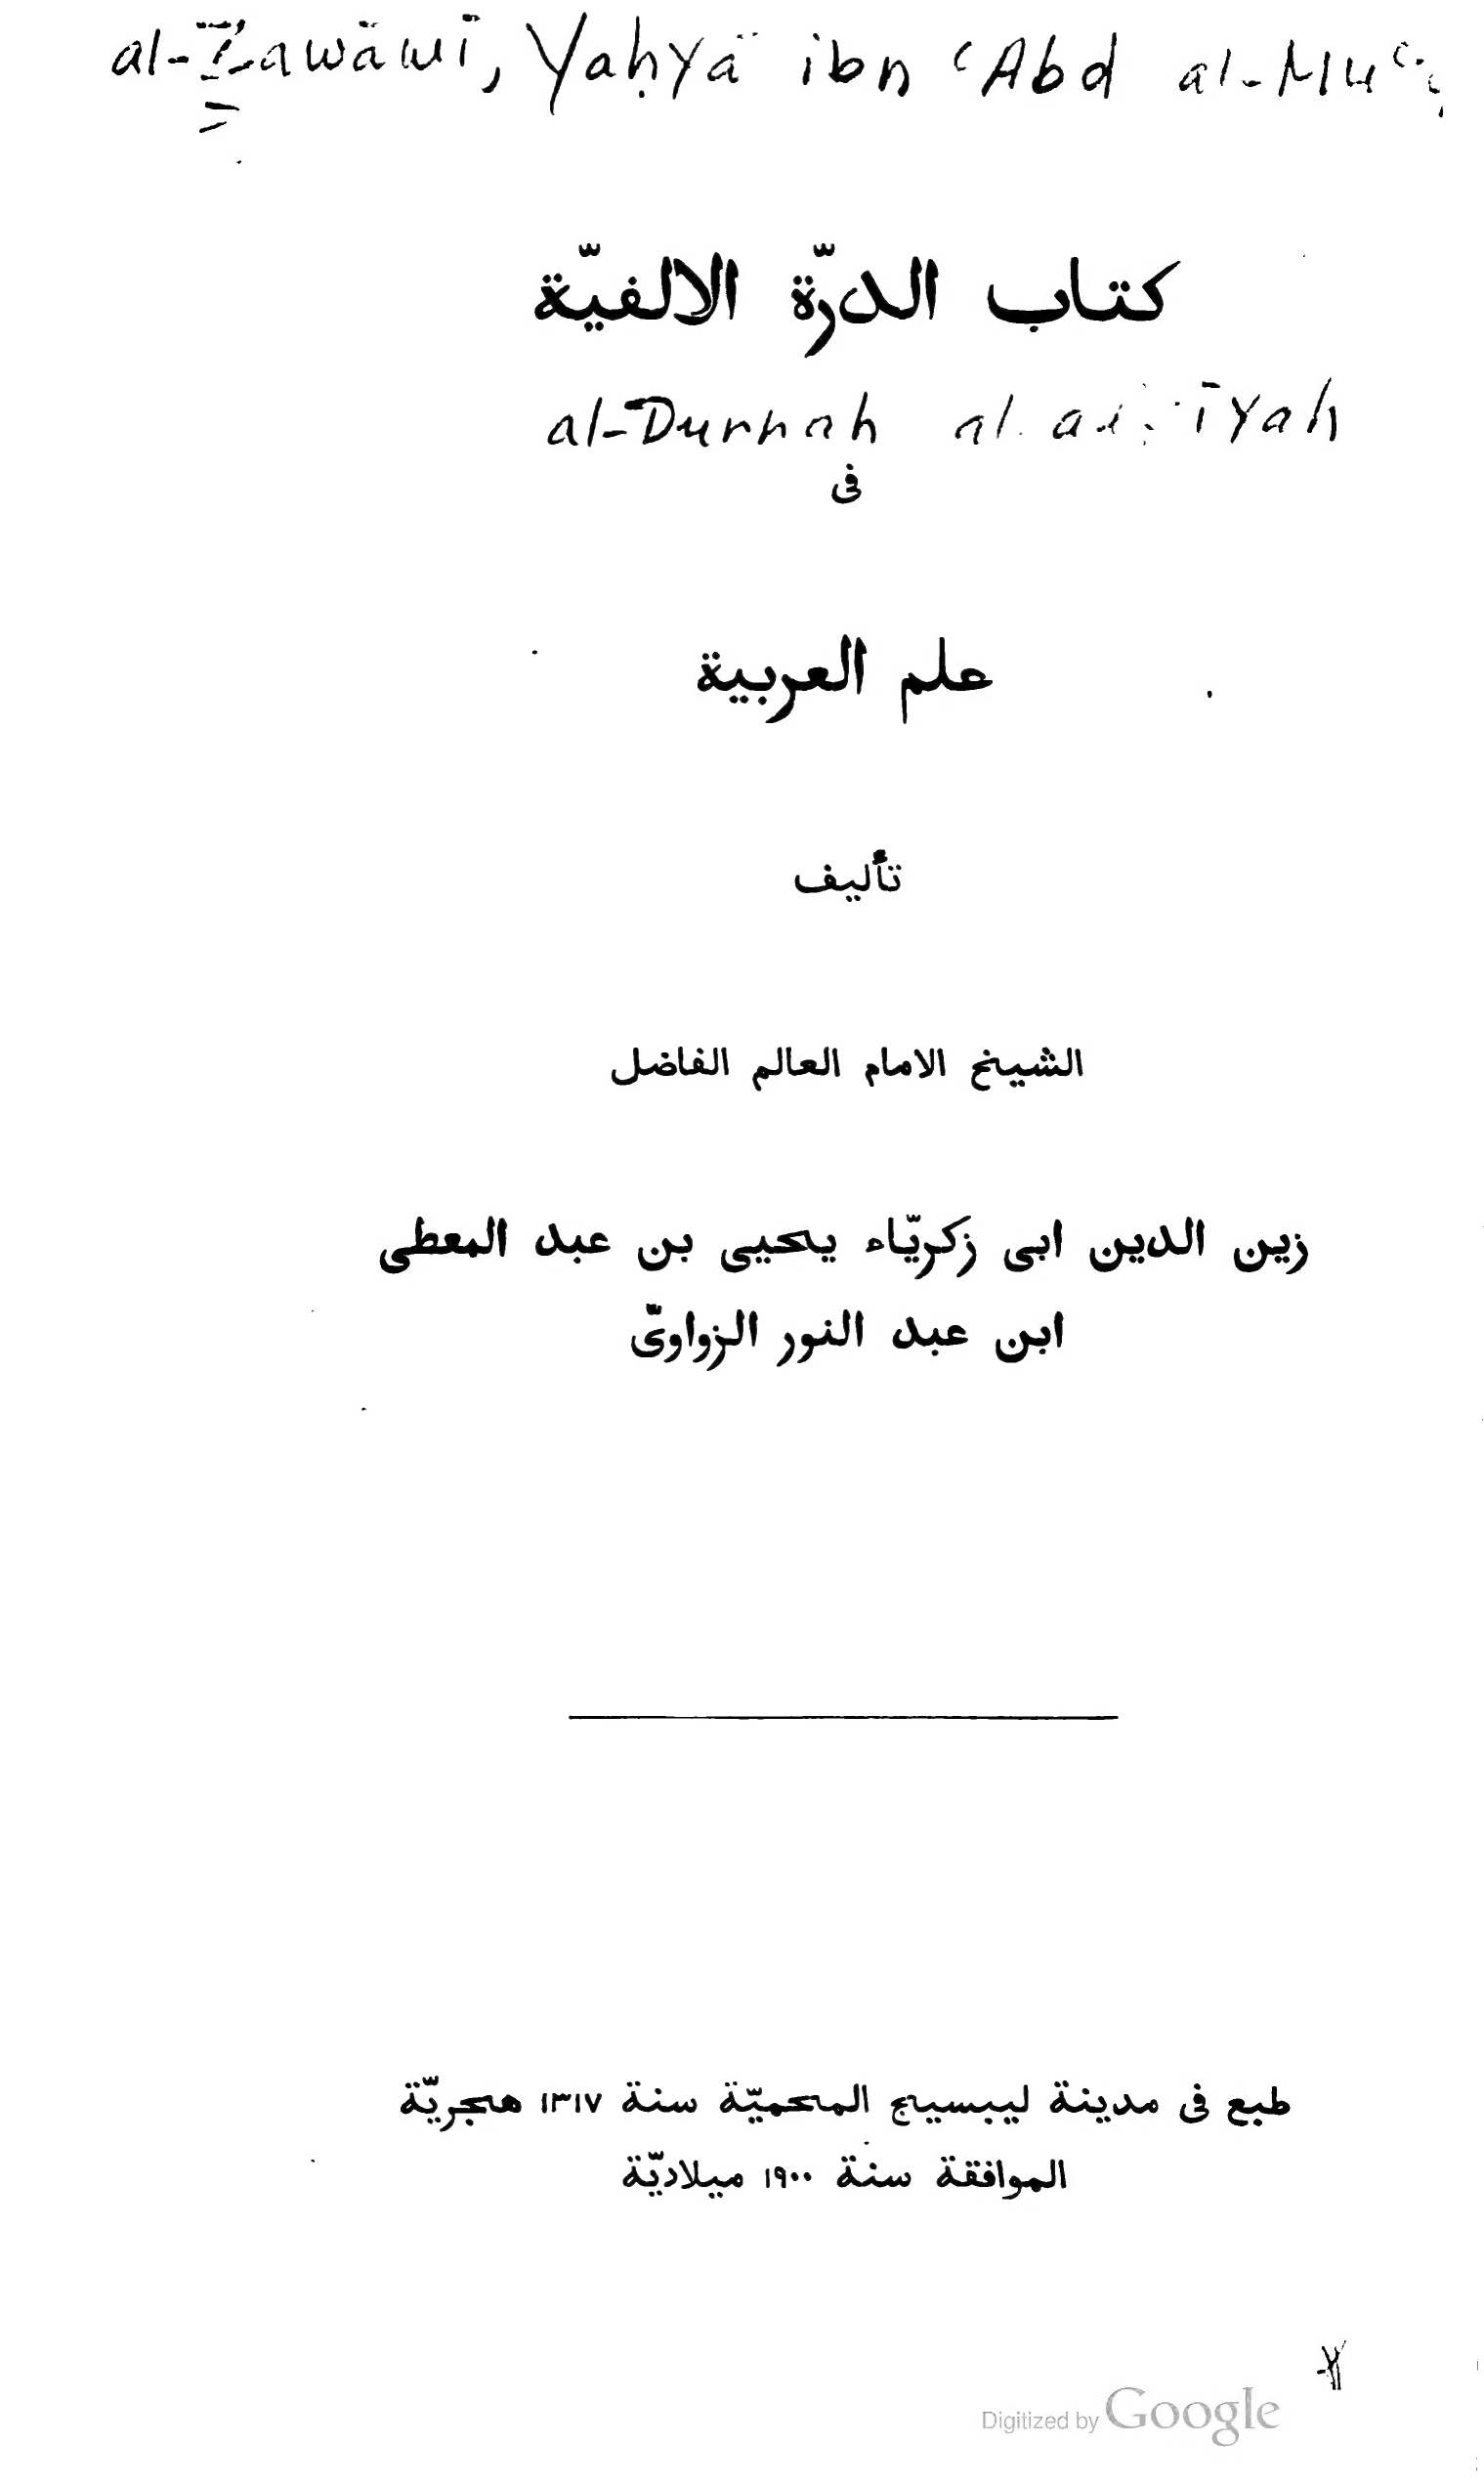 al-Zawāwī, Yaḥyā ibn ʿAbd al-Muʿ
كتاب الدرّة الالفيّة
al-Durrah al
فى
علم العربية
تأليف
الشيخ الامام العالم الفاضل
زين الدين ابى زكريّاء يحيى بن عبد المعطى
ابن عبد النور الزواوىّ
طبع فى مدينة ليبسيج المحميّة سنة ١٣١٧ هجريّة
الموافقة سنة ١٩٠٠ ميلاديّة
Digitized by Google